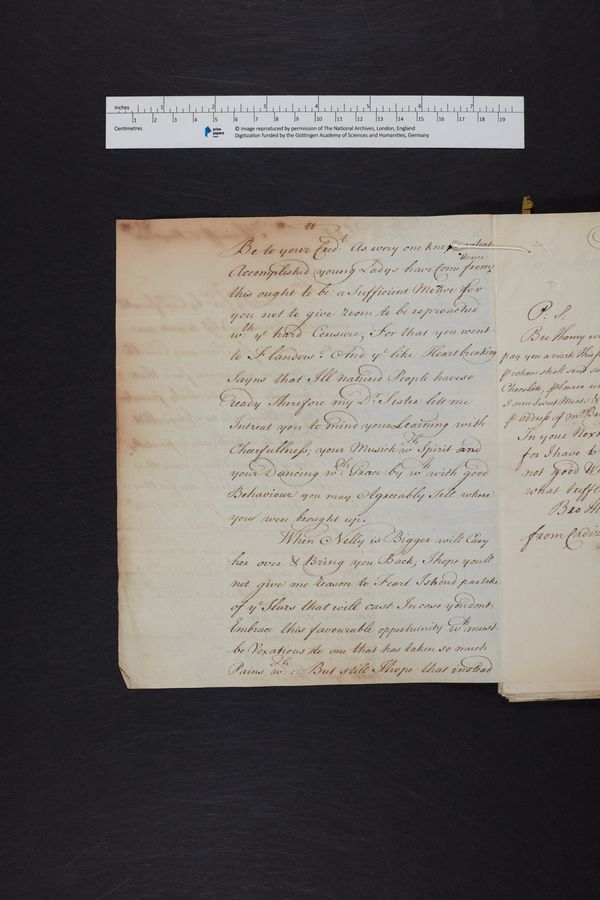 Inches 1 2 3 4 5 6 7
1 2 3 4 5 6 7 8 9 10 11 12 13 14 15 16 17 18 19
Centimetres
prize papers
© Image reproduced by permission of The National Archives, London, England
Digitization funded by the Göttingen Academy of Sciences and Humanities, Germany
Be to your Credt. As every one knows what
thence
Accomplished young Ladys have Come from
this ought to be a Sufficient Motive for
you not to give room to be reproached
wth. ye hard Censure, For that you went
to Flanders? And ye like Heartbreaking
Sayns that Ill natured People have so
ready Therefore my Dr. Sister lett me
Intreat you to mind your Learning with
Cheerfullness, your Musick wth Spirit and
your Dancing wth. Grace by wch with good
Behaviour you may Agreeably Tell where
you were brought up.
When Nelly is Bigger will Cary
her over & Bring you Back, I hope youll
not give me reason to Feart I shoud partake
of ye Slurs that will cast In case you dont
Embrace this favourable oppertunity wch must
be Vexatious to one that has taken so much
Pains wth. But still I hope that instead
P. S.
Bro Thomy
pay you a visit this
whom shall send
Chocolate,
I am Sweet Meats &
address of
In your Next
for I have
not good
what Suffe
Bro
from Cadiz